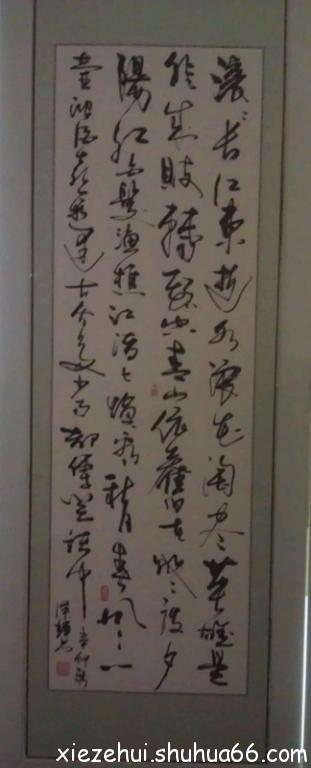 滚滚长江東逝水浪花淘尽英雄是
非成敗轉頭空青山依舊在几度夕
陽红白髮漁樵江渚上慣看秋月春風一
壺濁酒喜相逢古今多少事都付笑談中 辛卯
xiezehui.shuhua66.com